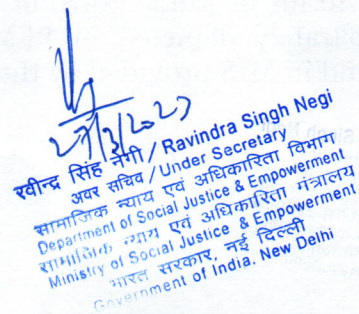 27/3/2023
रवीन्द्र सिंह नेगी / Ravindra Singh Negi
अवर सचिव / Under Secretary
सामाजिक न्याय एवं अधिकारिता विभाग
Department of Social Justice & Empowerment
सामाजिक न्याय एवं अधिकारिता मंत्रालय
Ministry of Social Justice & Empowerment
भारत सरकार, नई दिल्ली
Government of India. New Delhi